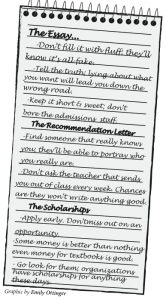 The Essay...
-Don't fill it with fluff; they'll
know it's all fake.
-Tell the truth; lying about what
you want will lead you down the
wrong road.
-Keep it short & sweet; don't
bore the admissions staff.
The Recommendation Letter
-Find someone that really knows
you; they'll be able to portray who
you really are.
-Don't ask the teacher that sends
you out of class every week. Chances
are they won't write anything good.
The Scholarships
-Apply early. Don't miss out on an
opportunity.
-Some money is better than nothing
even money for textbooks is good.
-Go look for them; organizations
have scholarships for anything
these days.
Graphic by Emily Ottinger